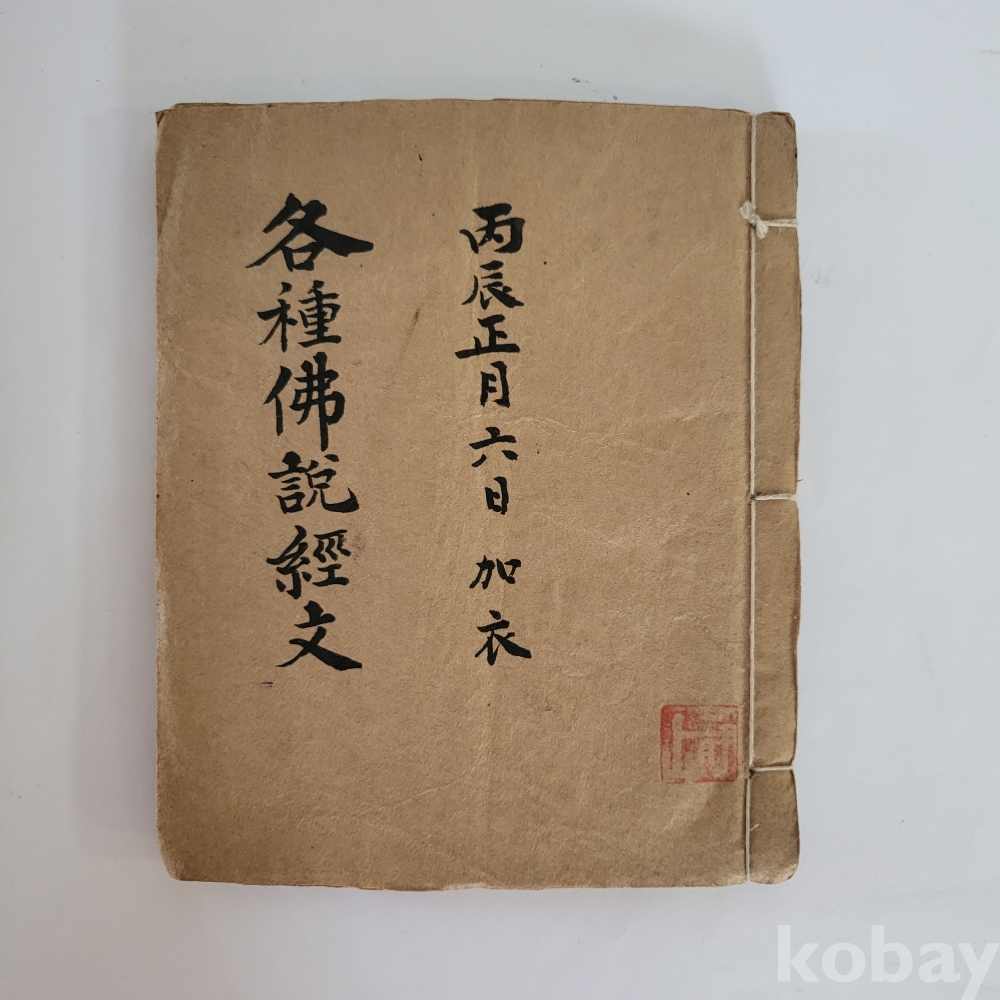 丙辰正月六日 加衣
各種佛說經文
kobay